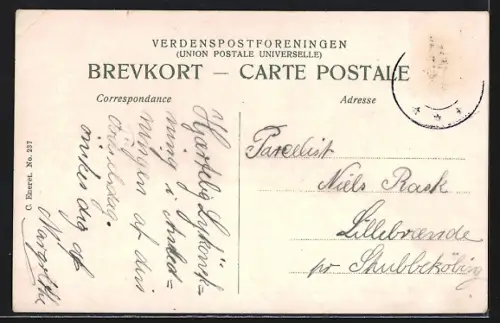 VERDENSPOSTFORENINGEN
(UNION POSTALE UNIVERSELLE)
BREVKORT — CARTE POSTALE
Correspondance
Adresse
Hjærtelig Lykønsk-
ning i Anled-
ningen af din
Fødselsdag.
ønskes dig af
C. Eneret. No. 297
Parcelist
Niels Rask
Lillebrænde
pr Stubbekøbing